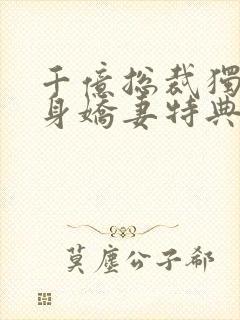 千億總裁獨
身嬌妻特典
莫塵公子郗